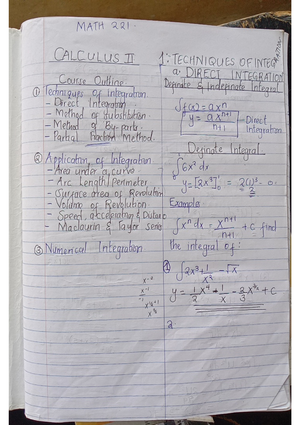 MATH 221
CALCULUS II
Course Outline
① Techniques of Integration
- Direct Integration
- Method of Substitution
- Method of By-parts
- Partial Method
② Application of Integration
- Area under a curve
- Arc Length/Perimeter
- Surface area of Revolution
- Volume of Revolution
- Speed, accelerating &
- Maclaurin & Taylor
③ Numerical Integration
1: TECHNIQUES OF INTEG
a. DIRECT INTEGRATION
Definite & Indefinite Integral
∫f(x) = axⁿ
y = axⁿ⁺¹ / n+1
Direct Integration
Definite Integral
∫6x² dx
Examples
∫xⁿ dx = xⁿ⁺¹ / n+1 + C find
the integral of:
① ∫2x³ + 1/x² - √x
y = 1/2 x⁴ - 1/x - 2/3 x^3/2 + C
2